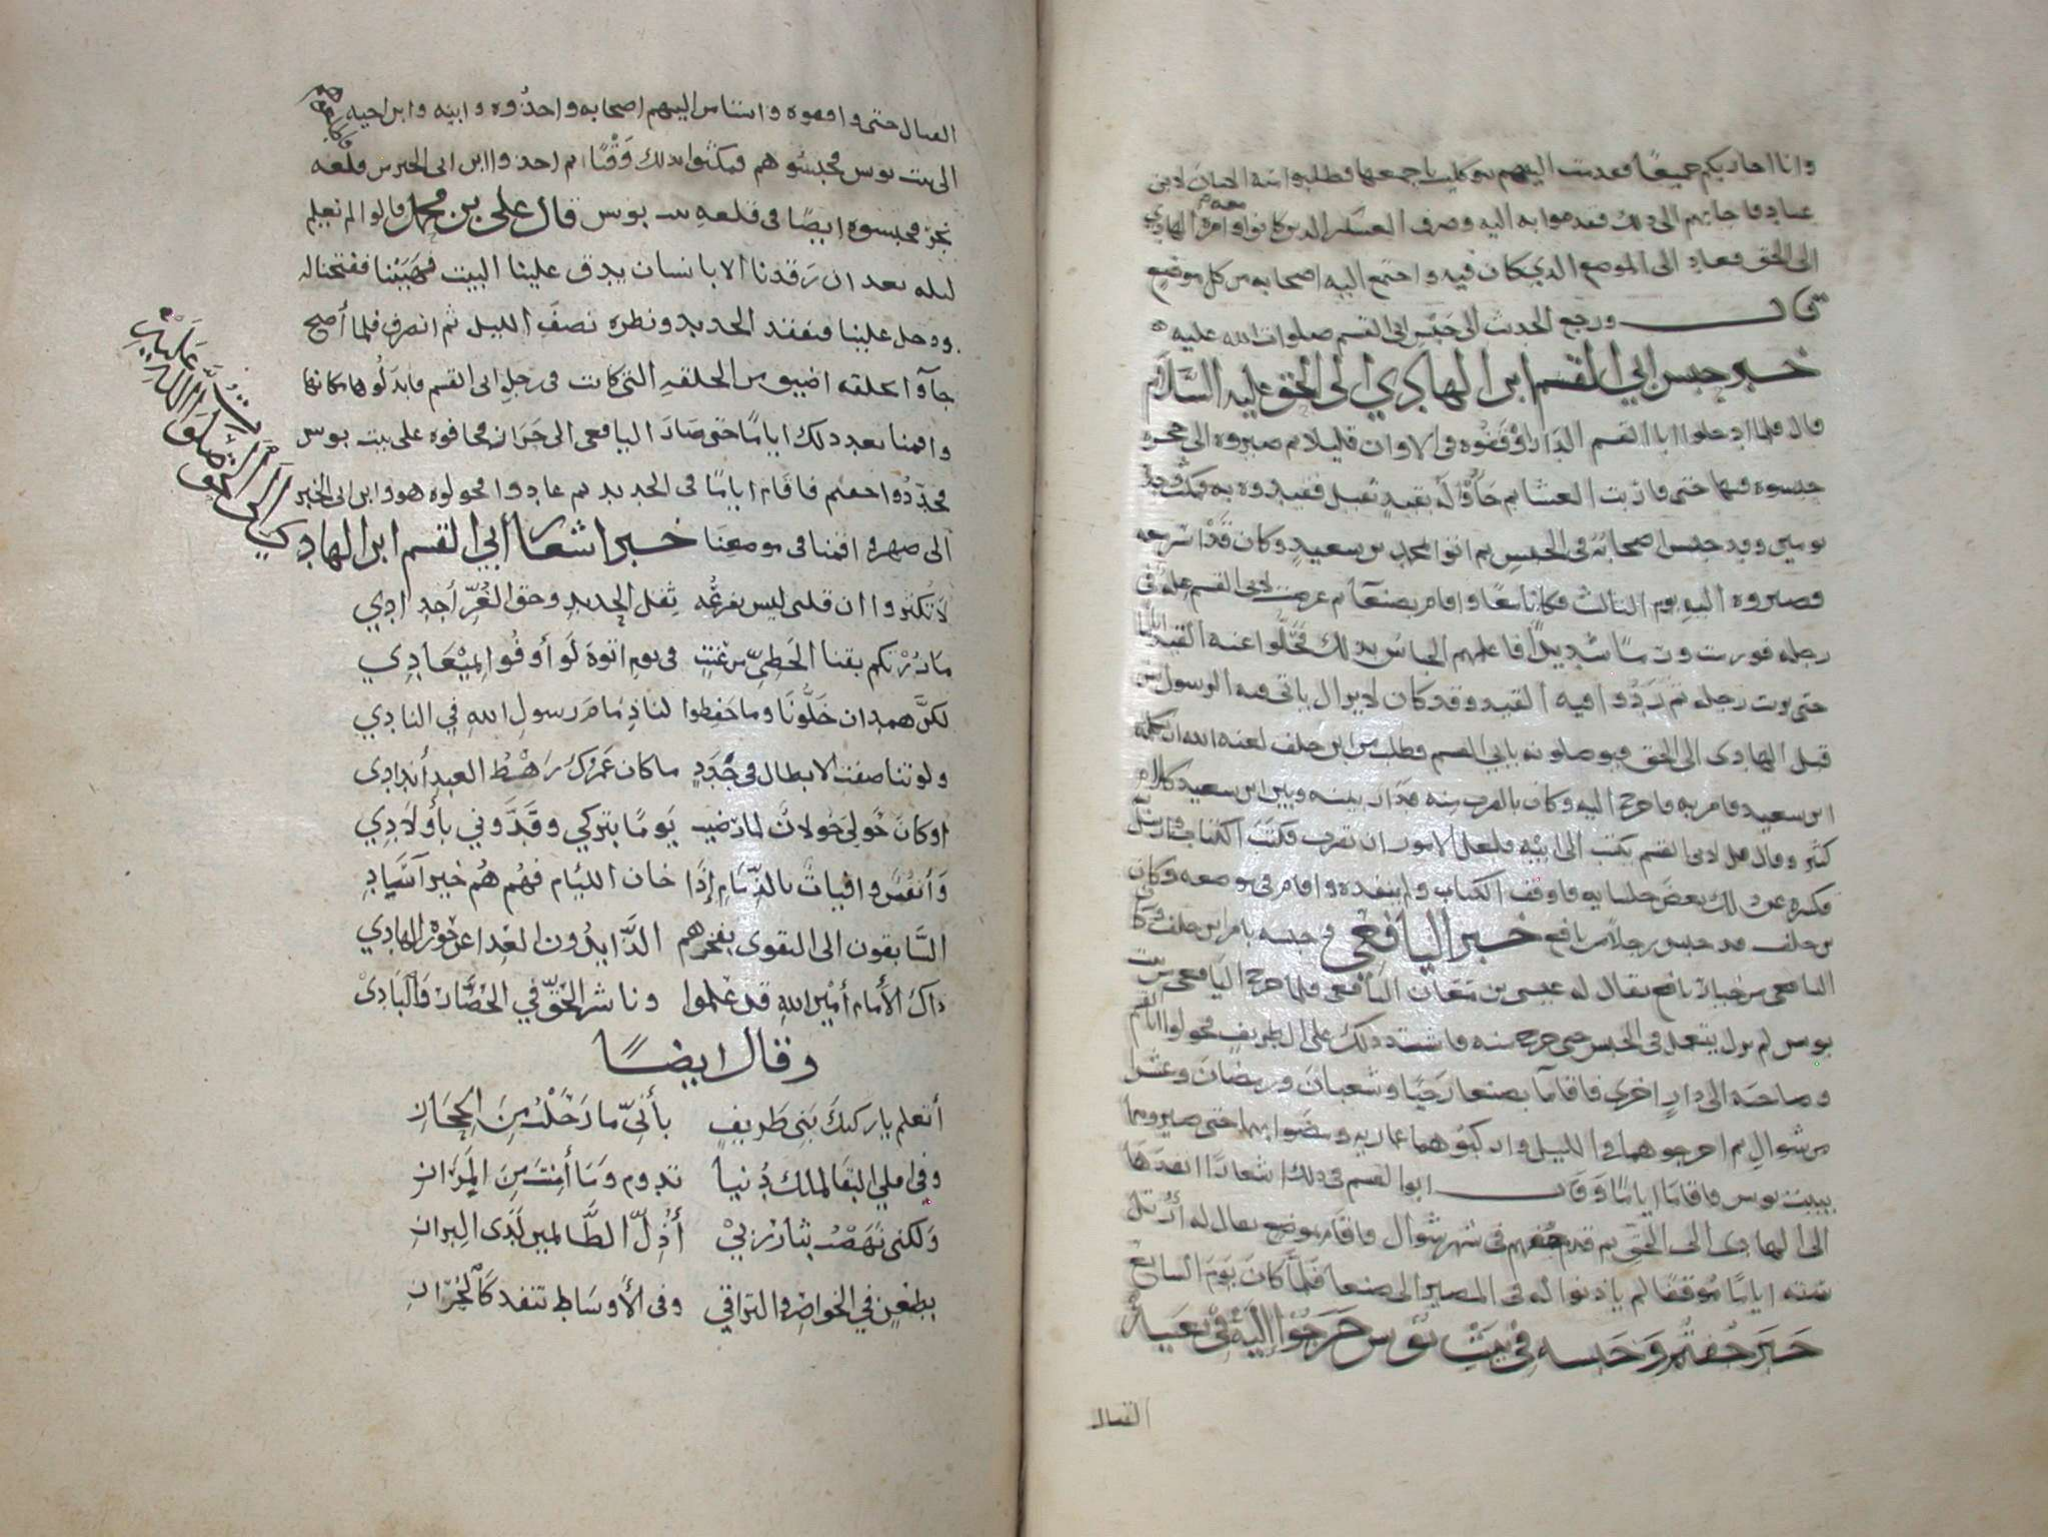 وانا احاربكم جميعا فعدت اليهم باجمعها فطلبوا منه الامان لابن
عباد فاجابهم الى ذلك فقدموا به اليه وصرف العسكر الذين كانوا
الى الحق فعاد الى الموضع الذي كان فيه واجتمع اليه اصحابه من كل موضع
قال ورجع الحدث الى حبس ابى القسم صلوات الله عليه
خبر حبس ابي القسم ابن الهادي الى الحق عليه السلام
قال فلما ادخلوا ابا القسم الدار اوقفوه في الاوان قليلا ثم صيروه الى حجره
حبسوه فيها حتى فاتت العشا ثم جآؤا له بقيد ثقيل فقيدوه به فمكث
يومين وقد حبس اصحابه في الحبس ثم اتوا محمد بن سعيد وكان
وصيروه اليه يوم الثالث فكانا معا واقام بصنعا ثم عرضت لابى القسم عله في
رجله فورمت ورما شديدا فاعلمهم الحابس بذلك فحلوا عنه القيد اياما
حتى برت رجله ثم ردوا فيه القيد وقد كان لا يزال ياتى فيه الرسول من
قبل الهادى الى الحق فيوصلونه بابي القسم وطلب من ابن خلف لعنه الله ان يكلمه
ابن سعيد فامر به فاخرج اليه وكان بالقرب منه فدار بينه وبين ابن سعيد كلام
كثير وقال قل لابى القسم يكتب الى ابيه فلعل الامور ان تقرب فكتب الكتاب
فكره عن ذلك بعض جلسايه فاوقف الكتاب ولم ينفده واقام في موضعه وكان
بن خلف قد حبس رجلا من يافع خبر اليافعي وحبسه بامر ابن خلف وكان
اليافعي من يافع يقال له عيسى بن معان اليافعي فلما خرج اليافعي من بيت
بوس لم يزل يتعمد في الحبس حتى خرج منه فاشتد ذلك على ال طريف فحولوا ابا القسم
وصاحبه الى دار اخرى فاقاما بصنعا رجبا وشعبان ورمضان وعشرا
من شوال ثم اخرجوهما في الليل واركبوهما عماريه ومضوا بهما حتى صيروهما
ببيت بوس فاقاما اياما وقال ابوا القسم في ذلك اشعارا انفدها
الى الهادى الى الحق ثم قدم جفتم في شهر شوال فاقام بموضع يقال له
سته اياما موقفا لم ياذنوا له في المصير الى صنعا فلما كان يوم السابع
خبر جفتم وحبسه في بيت بوس خرجوا اليه في تعبية
القتال
القتال حتى واقفوه واستامن اليهم اصحابه واخذوه وابنه وابن اخيه
الى بيت بوس فحبسوهم فمكثوا بذلك وقتا ثم اخذوا ابن ابى الخير من قلعه
فحبسوه ايضا في قلعه بيت بوس قال على بن محمد قالوا لم نعلم
ليله بعد ان رقدنا الا بانسان يدق علينا البيت فهببنا ففتحنا له
ودخل علينا فتفقد الحديد ونظره نصف الليل ثم انصرف فلما أصبح
جآوا بحلقه اضيق من الحلقه التي كانت في رجل ابى القسم فابدلوها مكانها
واقمنا بعد ذلك اياما حتى صار اليافعى الى فخافوه على بيت بوس
فجددوا جفتم فاقام اياما في الحديد ثم عادوا فحولوه هو وابن ابى الخير
الى ضهر واقمنا في موضعنا خبر اشعار أبي القسم ابن الهادي
إلى الحق صلوات الله عليه
لا تنكروا ان قلبى ليس يفزعه ثقل الحديد وحق العز أجدادي
ما زرتكم بقنا الخطي من عنت في يوم اتوة لو أوفوا لميعادي
لكن همدان خلونا وما حفظوا لنا ذمام رسول الله في النادي
ولو تناصفت الابطال في جدد ما كان عمرك رهط العبد أندادي
او كان حولي خولان لما رضيت يوما بتركي وفدوني بأولادي
وأنفس وافيات بالذمام إذا خان الليام فهم هم خير آساد
السابقون الى التقوى بفخرهم الذايدون العدا عن حوزة الهادي
ذاك الأمام أمير الله قد علموا وناشر الحق في الحضار والبادي
وقال ايضا
أتعلم يا ركيك بني طريف بأني ما دخلت من الحجاز
وفي املي البقا لملك دنيا تدوم وما أمنت من المراز
ولكني نهضت بثار ربي أذل الظالمين لدى البراز
بطعن في الخواصر والتراقي وفى الأوساط تنفد كالجراز